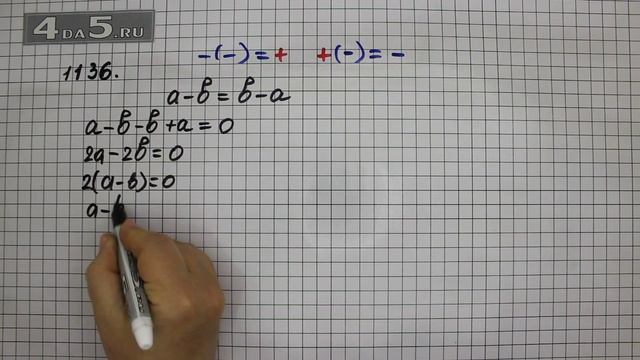 4DA5.RU
-(-)=+ +(-)=-
1136.
a-в=в-a
a-в-в+a=0
2a-2в=0
2(a-в)=0
a-